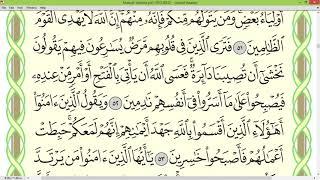 أَوْلِيَآءُ بَعْضٍ وَمَن يَتَوَلَّهُم مِّنكُمْ فَإِنَّهُۥ مِنْهُمْ إِنَّ ٱللَّهَ لَا يَهْدِى ٱلْقَوْمَ
ٱلظَّٰلِمِينَ ٥١ فَتَرَى ٱلَّذِينَ فِى قُلُوبِهِم مَّرَضٌ يُسَٰرِعُونَ فِيهِمْ يَقُولُونَ
نَخْشَىٰٓ أَن تُصِيبَنَا دَآئِرَةٌ فَعَسَى ٱللَّهُ أَن يَأْتِىَ بِٱلْفَتْحِ أَوْ أَمْرٍ مِّنْ عِندِهِۦ
فَيُصْبِحُوا۟ عَلَىٰ مَآ أَسَرُّوا۟ فِىٓ أَنفُسِهِمْ نَٰدِمِينَ ٥٢ وَيَقُولُ ٱلَّذِينَ ءَامَنُوٓا۟
أَهَٰٓؤُلَآءِ ٱلَّذِينَ أَقْسَمُوا۟ بِٱللَّهِ جَهْدَ أَيْمَٰنِهِمْ إِنَّهُمْ لَمَعَكُمْ حَبِطَتْ
أَعْمَٰلُهُمْ فَأَصْبَحُوا۟ خَٰسِرِينَ ٥٣ يَٰٓأَيُّهَا ٱلَّذِينَ ءَامَنُوا۟ مَن يَرْتَدَّ